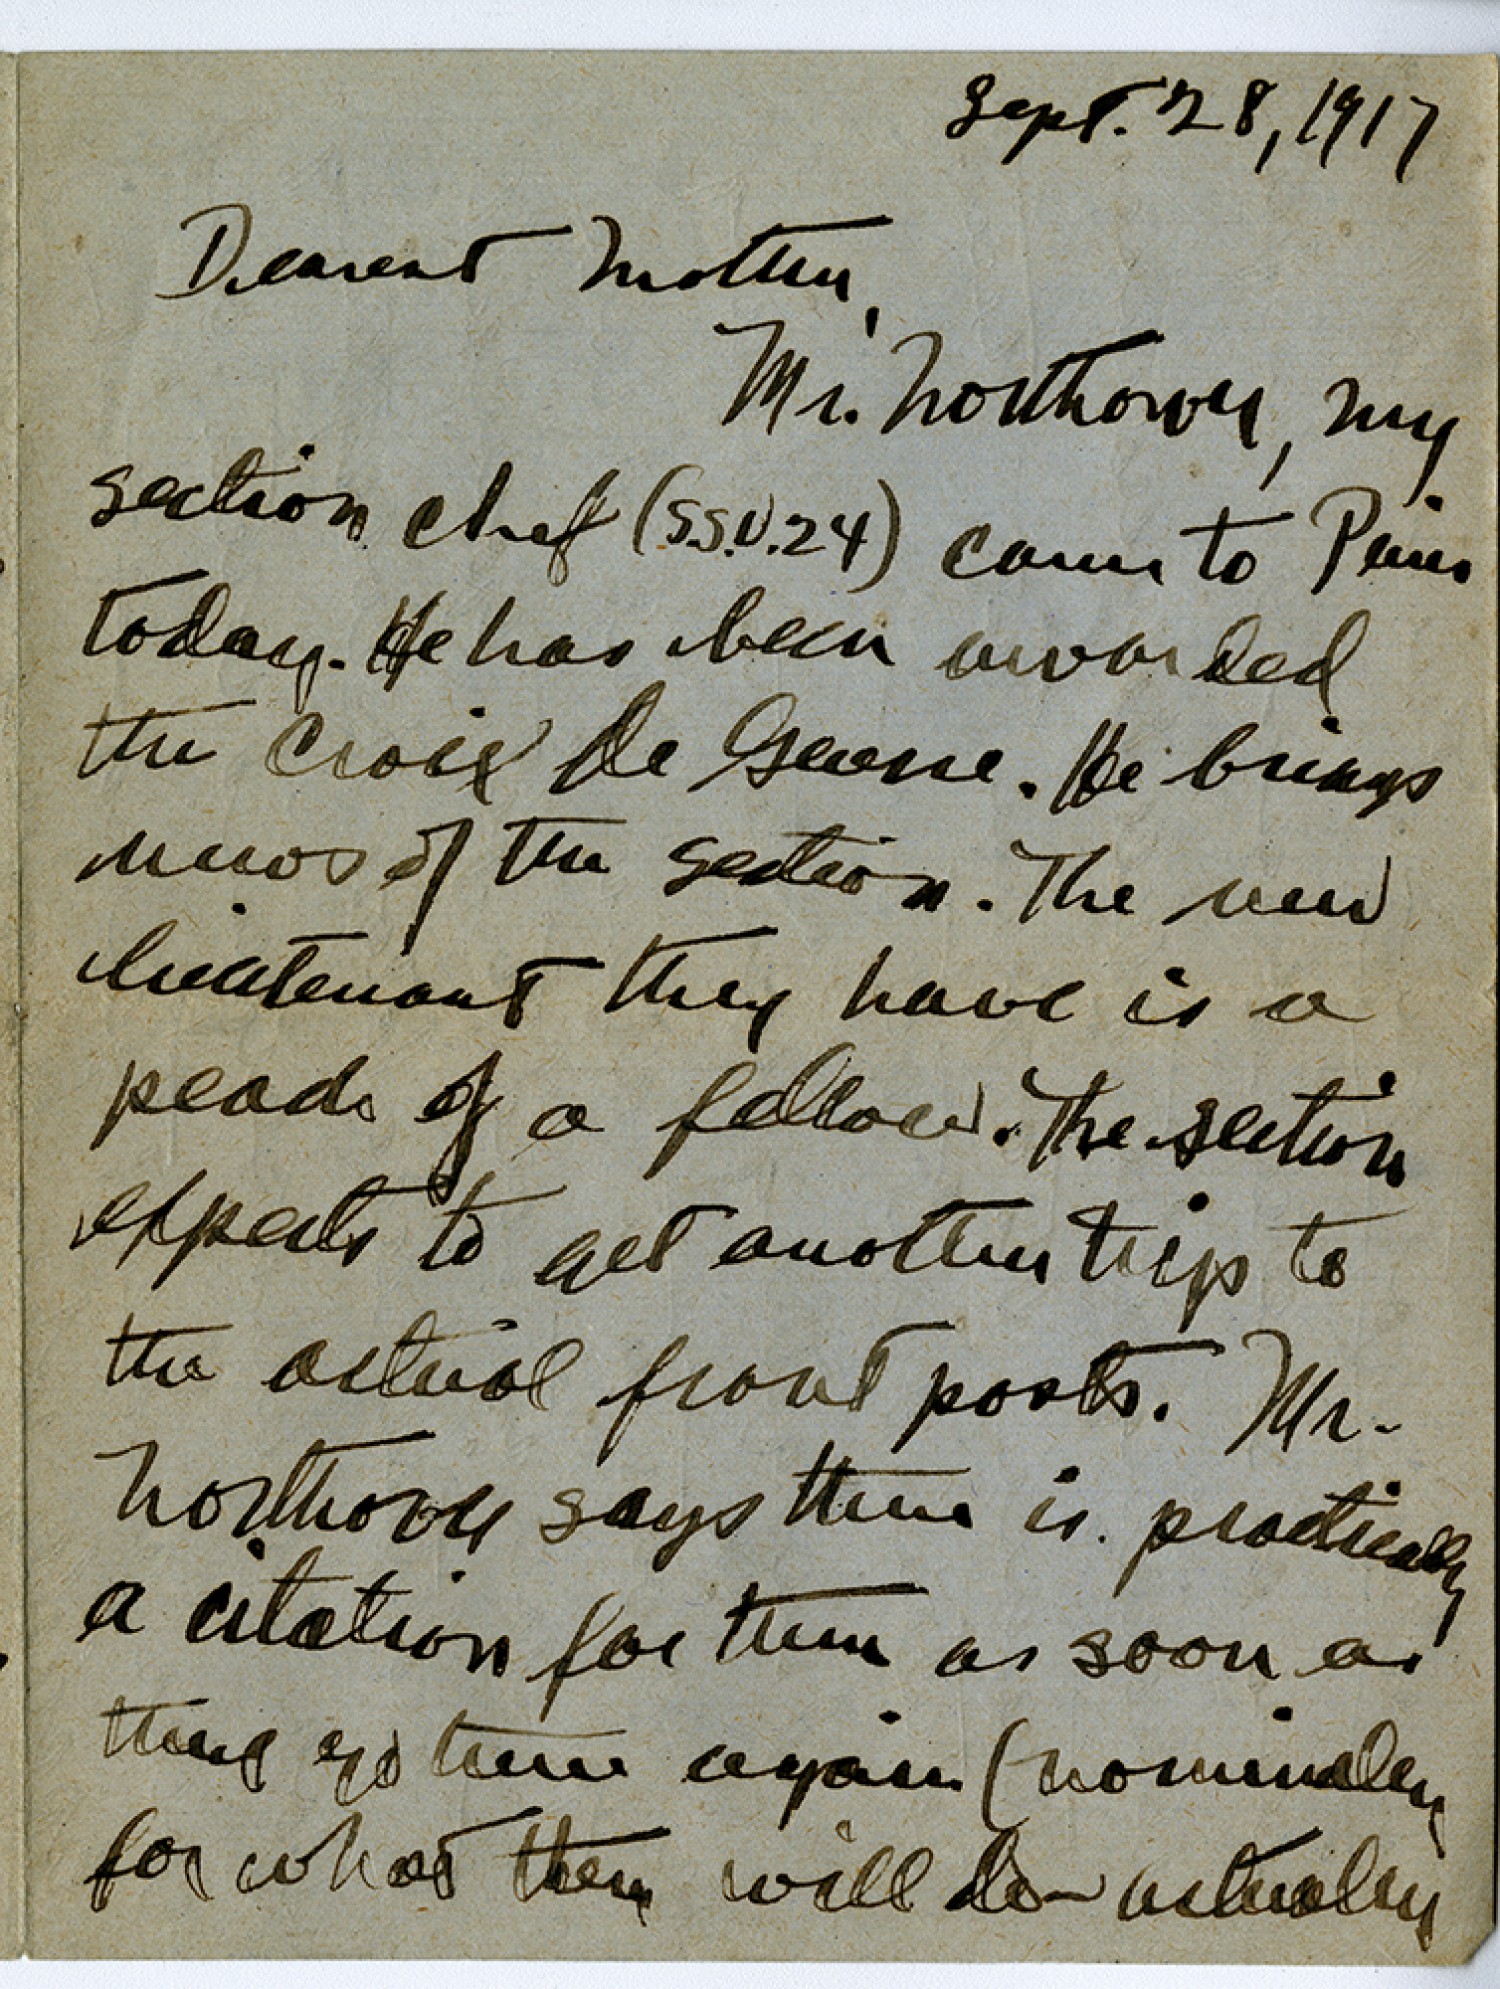 Sept. 28, 1917
Dearest Mother,
Mr. Northorwy, my
section chef (S.S.U. 24) came to Paris
today. He has been awarded
the Croix de Guerre. He brings
news of the section. The new
lieutenant they have is a
peach of a fellow. The section
expects to get another trip to
the actual front posts. Mr.
says there is practically
a citation for them as soon as
they go there again (nominally
for what they will do – actually